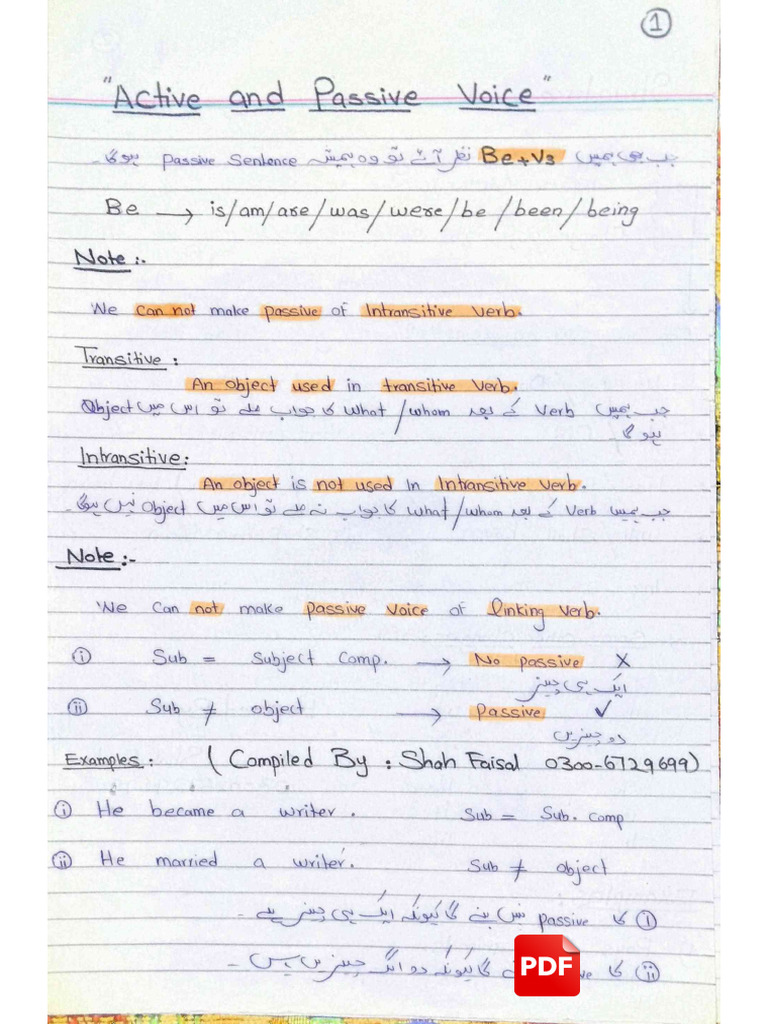 1
"Active and Passive Voice"
جب بھی ہمیں Be+V3 نظر آئے تو وہ ہمیشہ Passive Sentence ہوگا۔
Be → is/am/are/was/were/be/been/being
Note :-
We can not make passive of Intransitive verb.
Transitive :
An object used in transitive verb.
جب ہمیں Verb کے بعد What/whom کا جواب ملے تو اس میں Object
ہوگا۔
Intransitive:
An object is not used in Intransitive verb.
جب ہمیں Verb کے بعد What/whom کا جواب نہ ملے تو اس میں Object نہیں ہوگا۔
Note :-
We Can not make passive voice of linking verb.
i Sub = Subject Comp. → No passive X
ایک ہی چیز
ii Sub ≠ object → Passive ✓
دو چیزیں
Examples : (Compiled By : Shah Faisal 0300-6729699)
i He became a writer. Sub = Sub. Comp
ii He married a writer. Sub ≠ object
i کا Passive نہیں بنے گا کیونکہ ایک ہی چیز ہے۔
ii کا گا کیونکہ دو الگ چیزیں ہیں۔
PDF